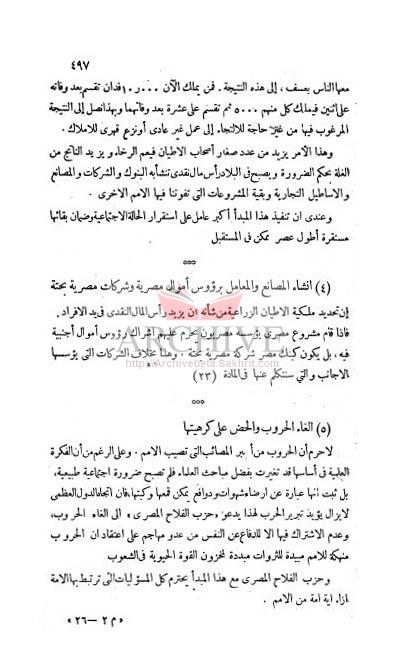 ٤٩٧
معها الناس بعسف، إلى هذه النتيجة. فمن يملك الآن ١٠٫٠٠٠ فدان تقسم بعد وفاته
على اثنين فيملك كل منهم ٥٠٠٠ ثم تقسم على عشرة بعد وفاتهما وبهذا نصل إلى النتيجة
المرغوب فيها من غير حاجة للالتجاء إلى عمل غير عادى أو نزع قهرى للاملاك.
وهذا الأمر يزيد من عدد صغار أصحاب الاطيان فيعم الرخاء ويزيد الناتج من
الغلة بحكم الضرورة ويصبح فى البلاد رأس مال نقدى تنشأ به البنوك والشركات والمصانع
والاساطيل التجارية وبقية المشروعات التى تفوتنا فيها الامم الاخرى.
وعندى ان تنفيذ هذا المبدأ أكبر عامل على استقرار الحالة الاجتماعية وضمان بقائها
مستقرة أطول عصر ممكن فى المستقبل
***
(٤) انشاء المصانع والمعامل برؤوس أموال مصرية وشركات مصرية بحتة
إن تحديد ملكية الاطيان الزراعية من شأنه ان يزيد رأس المال النقدى فى يد الافراد.
فاذا قام مشروع مصرى يؤسسه مصريون يحرم عليهم اشراك رؤوس أموال أجنبية
فيه، بل يكون كبنك مصر شركة مصرية بحتة. وهذا بخلاف الشركات التى يؤسسها
الاجانب والتى سنتكلم عنها فى المادة (٢٣)
ARCHIVE
http://Archivebeta.Sakhrit.com
***
(٥) الغاء الحروب والحض على كرهيتها
لاجرم أن الحروب من أكبر المصائب التى تصيب الامم. وعلى الرغم من أن الفكرة
العلمية فى أساسها قد تغيرت بفضل مباحث العلماء فلم تصبح ضرورة اجتماعية طبيعية،
بل ثبت انها عبارة عن ارضاء شهوات ودوافع يمكن قمعها وكبتها، فان اتجاه الدول العظمى
لا يزال يؤيد تبرير الحرب لهذا يدعو «حزب الفلاح المصرى» الى الغاء الحروب،
وعدم الاشتراك فيها الا للدفاع عن النفس من عدو مهاجم على اعتقاد ان الحروب
منهكة للامم مبيدة للثروات مبددة لمخزون القوة الحيوية فى الشعوب
وحزب الفلاح المصرى مع هذا المبدأ يحترم كل المسؤليات التى ترتبط بها الامة
ازاء اية امة من الامم.
«م ٢ — ٢٦»